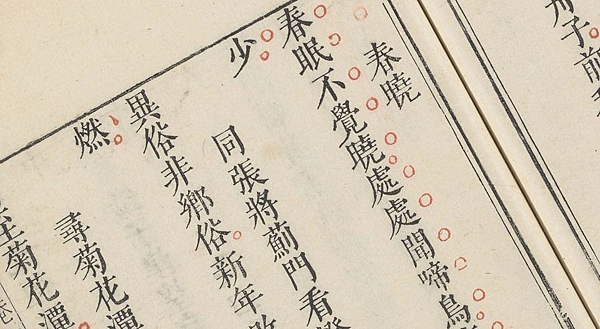 子前
春曉
春眠不覺曉處處聞啼鳥
少
同張將薊門看
異俗非鄉俗新年
燃
尋菊花潭
至菊花潭